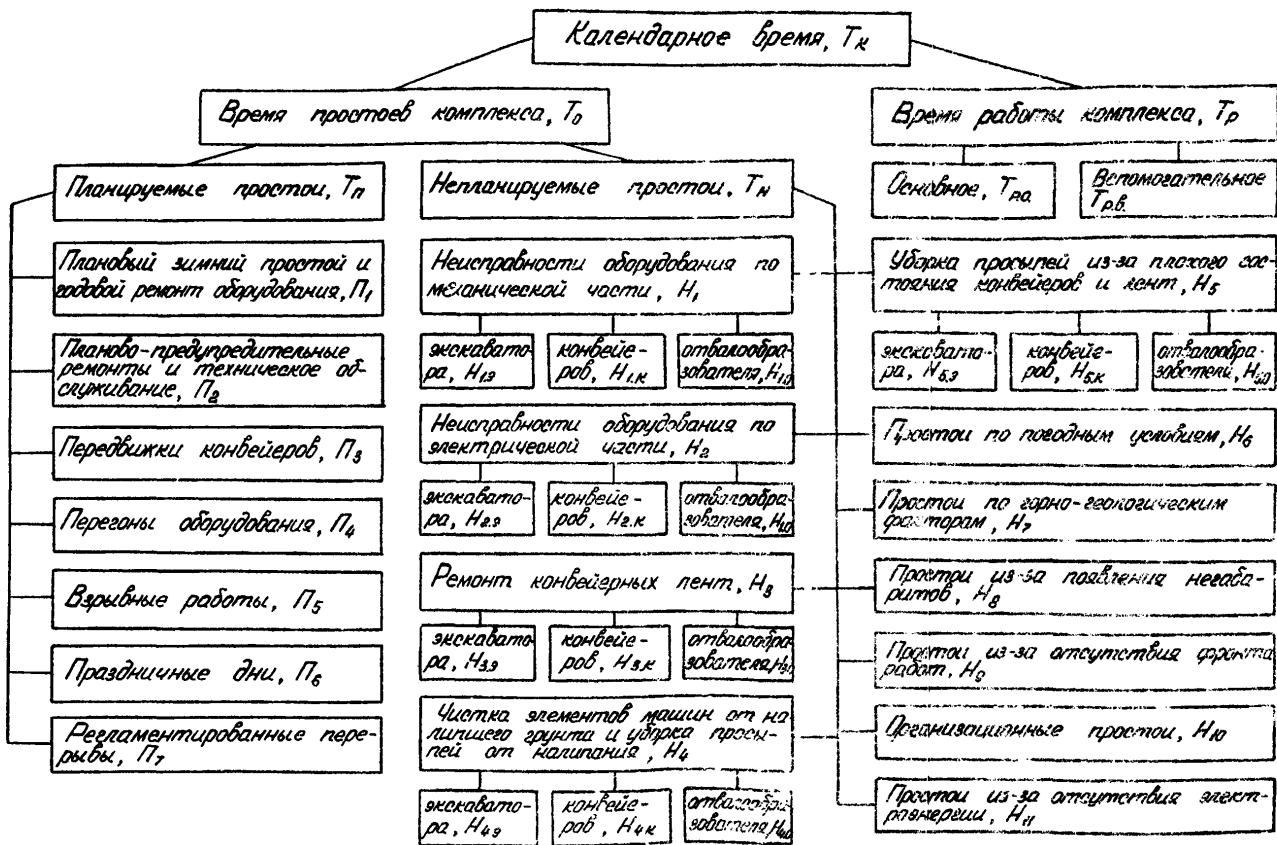 Календарное время, Тк
Время простоев комплекса, Т0
Время работы комплекса, Тр
Планируемые простои, Тп
Непланируемые простои, Тн
Основное, Тр.о.
Вспомогательное
Тр.в.
Плановый зимний простой и
годовой ремонт оборудования, П1
Планово-предупредительные
ремонты и техническое об-
служивание, П2
Передвижки конвейеров, П3
Перегоны оборудования, П4
Взрывные работы, П5
Праздничные дни, П6
Регламентированные пере-
рывы, П7
Неисправности оборудования по
механической части, Н1
экскавато-
ра, Н1.э
конвейе-
ров, Н1.к
отвалообра-
зователя, Н1.о
Неисправности оборудования по
электрической части, Н2
экскавато-
ра, Н2.э
конвейе-
ров, Н2.к
отвалообра-
зователя,
Ремонт конвейерных лент, Н3
экскавато-
ра, Н3.э
конвейе-
ров, Н3.к
отвалообра-
зователя, Н3.о
Чистка элементов машин от на
липшего грунта и уборка просы-
пей от налипания, Н4
экскавато-
ра, Н4э
конвейе-
ров, Н4к
отвалообра-
зователя, Н4о
Уборка просыпей из-за плохого сос-
тояния конвейеров и лент, Н5
экскавато-
ра, Н5.э
конвейе-
ров, Н5.к
отвалообра-
зователя, Н5.о
Простои по погодным условиям, Н6
Простои по горно-геологическим
факторам, Н7
Простои из-за появления негаба-
ритов, Н8
Простои из-за отсутствия фронта
работ, Н9
Организационные простои, Н10
Простои из-за отсутствия элект-
роэнергии, Н11